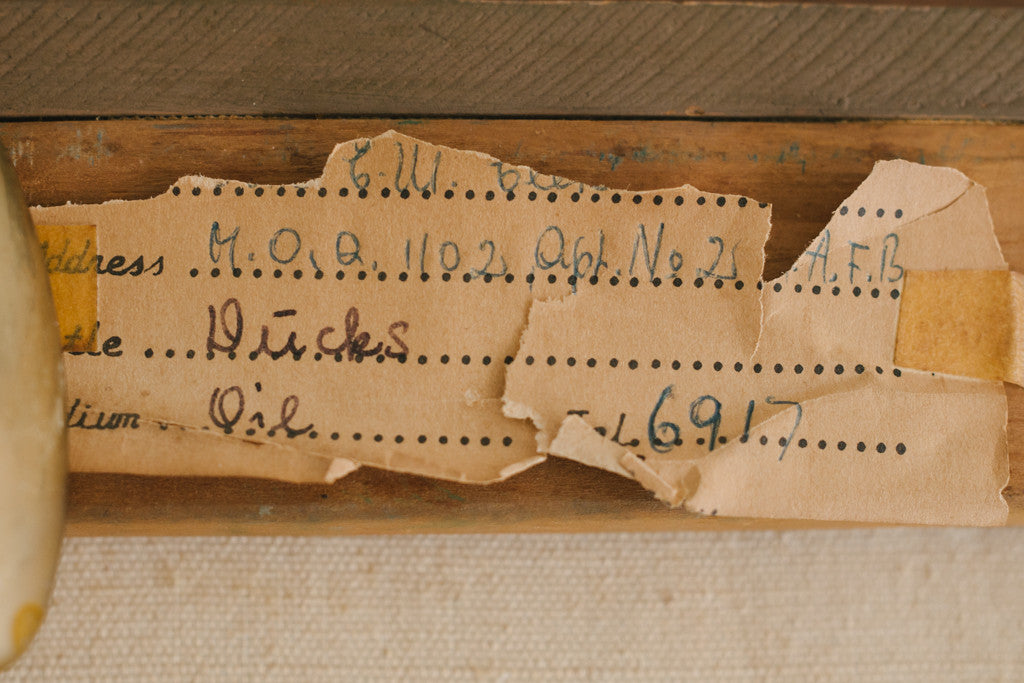 E.W.
Address M.O.Q. 1102 Apt. No 2 A.F.B
tle Ducks
dium Oil Tel. 6917